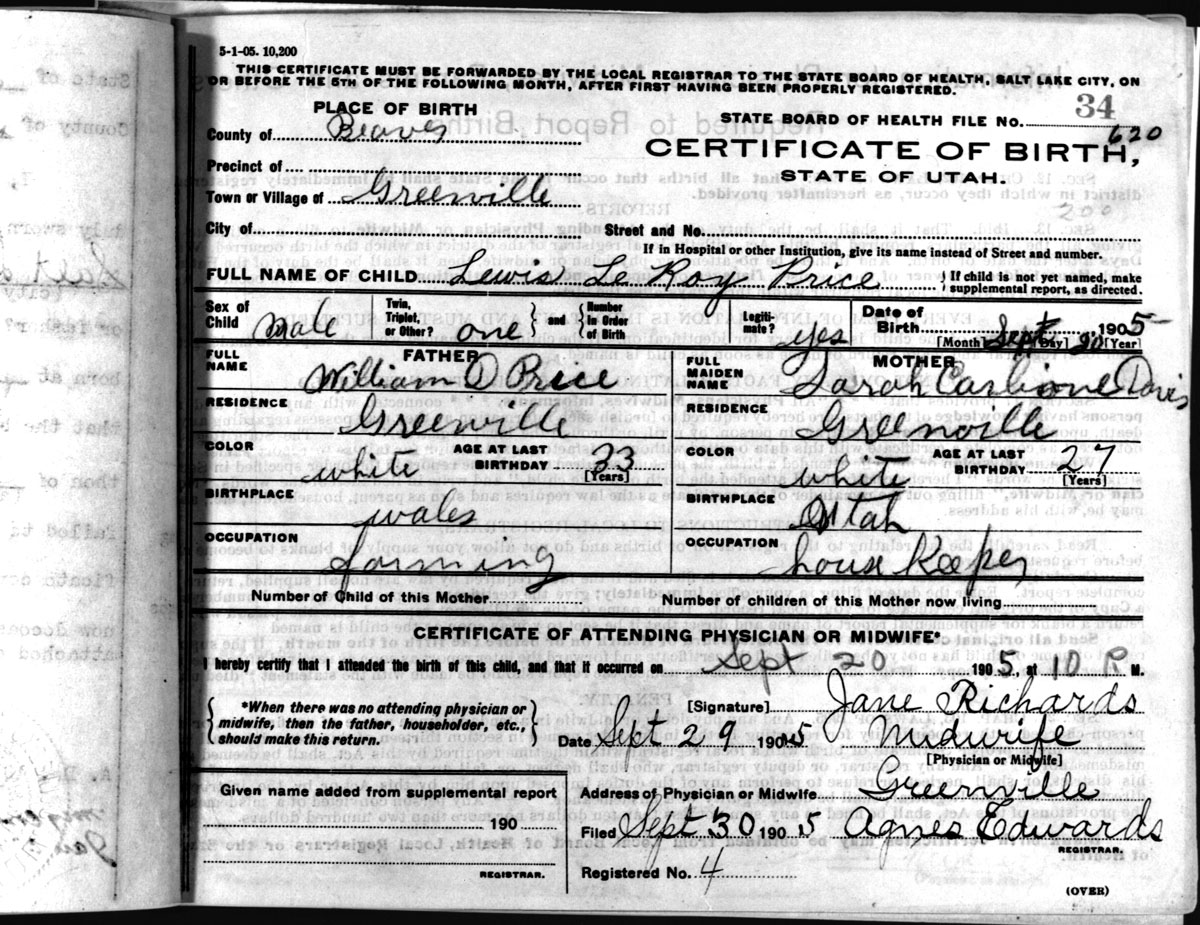 5-1-05. 10,200
THIS CERTIFICATE MUST BE FORWARDED BY THE LOCAL REGISTRAR TO THE STATE BOARD OF HEALTH, SALT LAKE CITY, ON
OR BEFORE THE 5TH OF THE FOLLOWING MONTH, AFTER FIRST HAVING BEEN PROPERLY REGISTERED.
34
PLACE OF BIRTH
STATE BOARD OF HEALTH FILE NO.
620
County of Beaver
CERTIFICATE OF BIRTH,
Precinct of
STATE OF UTAH.
Town or Village of Greenville
200
City of Street and No.
If in Hospital or other Institution, give its name instead of Street and number.
FULL NAME OF CHILD Lewis Le Roy Price { If child is not yet named, make supplemental report, as directed.
Sex of Child male Twin, Triplet, or Other? one } and { Number in Order of Birth Legiti- mate? yes Date of Birth Sept 20 1905
[Month] [Day] [Year]
FULL NAME FATHER William D Price
FULL MAIDEN NAME MOTHER Sarah Davis
RESIDENCE Greenville
RESIDENCE Greenville
COLOR white AGE AT LAST BIRTHDAY 33 [Years]
COLOR white AGE AT LAST BIRTHDAY 27 [Years]
BIRTHPLACE wales
BIRTHPLACE Utah
OCCUPATION farming
OCCUPATION house Keeper
Number of Child of this Mother Number of children of this Mother now living
CERTIFICATE OF ATTENDING PHYSICIAN OR MIDWIFE*
I hereby certify that I attended the birth of this child, and that it occurred on Sept 20 1905, at 10 P M.
{ *When there was no attending physician or midwife, then the father, householder, etc., should make this return. }
[Signature] Jane Richards
Date Sept 29 1905 Midwife
[Physician or Midwife]
Given name added from supplemental report
190
REGISTRAR.
Address of Physician or Midwife Greenville
Filed Sept 30 1905 Agnes Edwards
REGISTRAR.
Registered No. 4
(OVER)